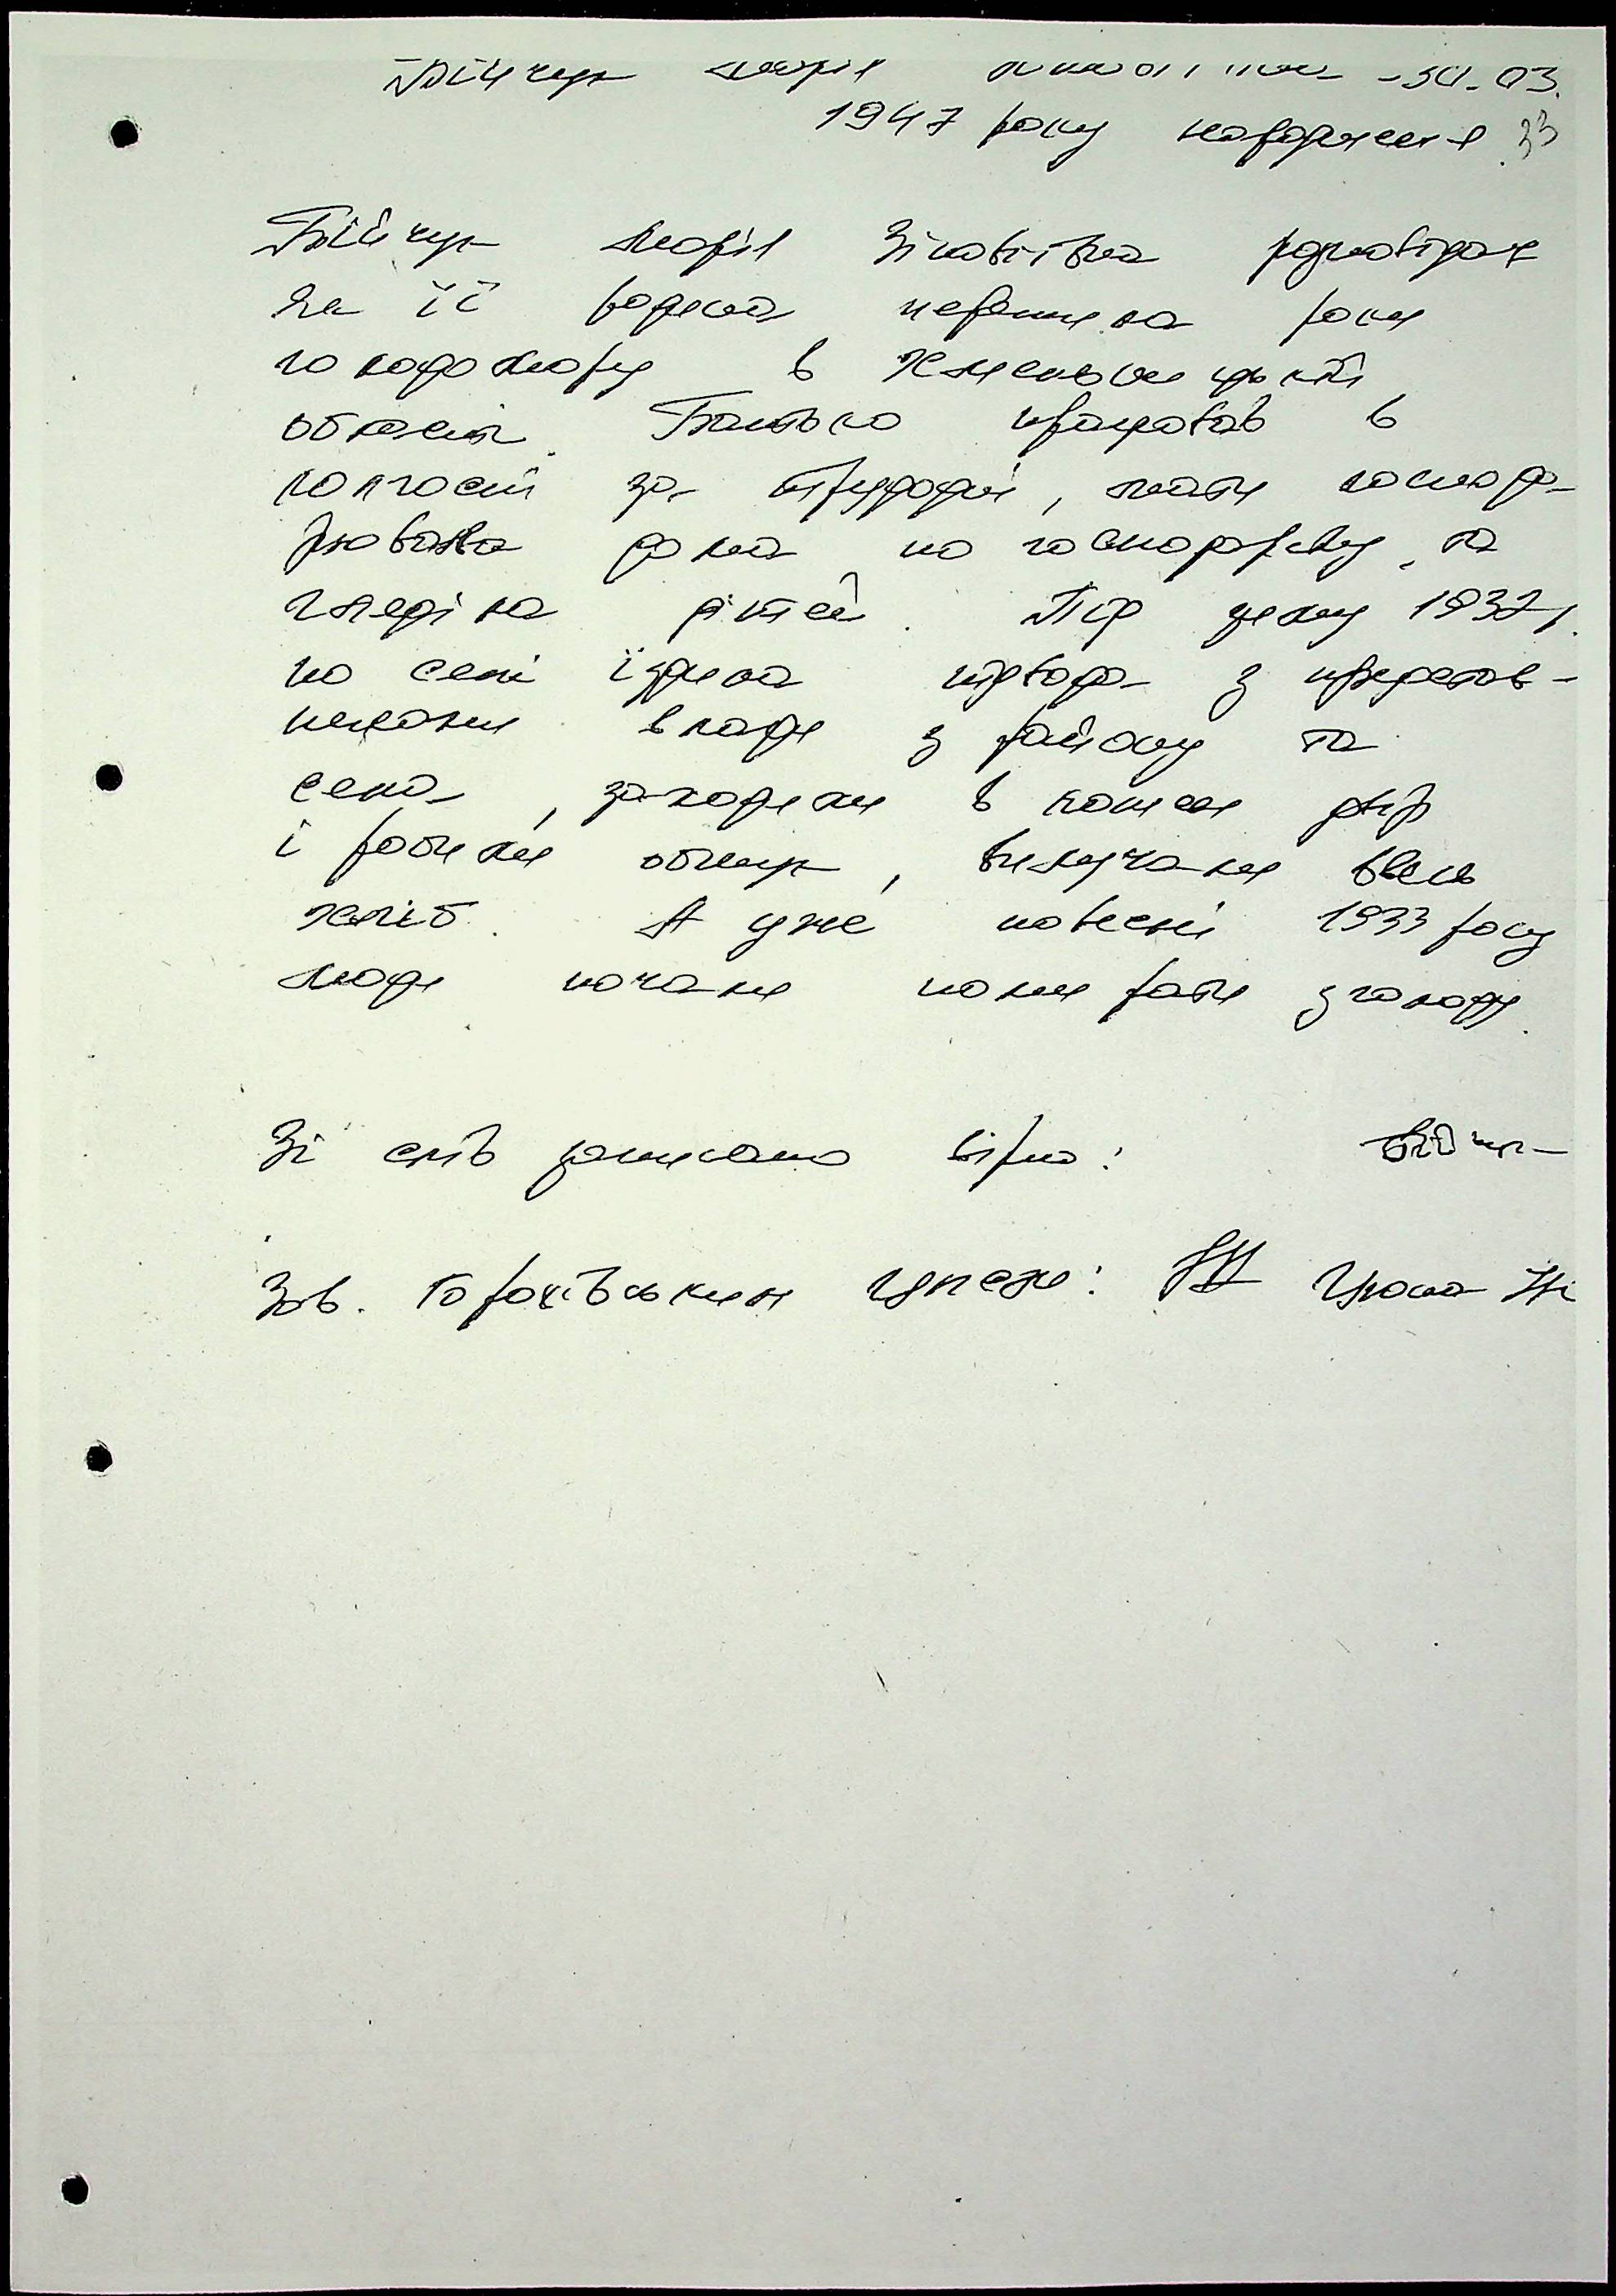 Бійчук Марія Зіновіївна - 30.03.
1947 року народження 33
Бійчук Марія Зіновіївна розповідає
як її родина пережила роки
голодомору в Хмельницькій
області. Батько працював в
колгоспі за трудодні, мати господа-
рювала дома по господарству, та
гляділа дітей. Під зиму 1932 р.
по селі їздила підвода з представ-
никами влади з району та
села, заходили в кожен двір
і робили обшук, вилучали ввесь
хліб. А уже повесні 1933 року
люди почали помирати з голоду.
Зі слів записано вірно:
Зав. Горохівською